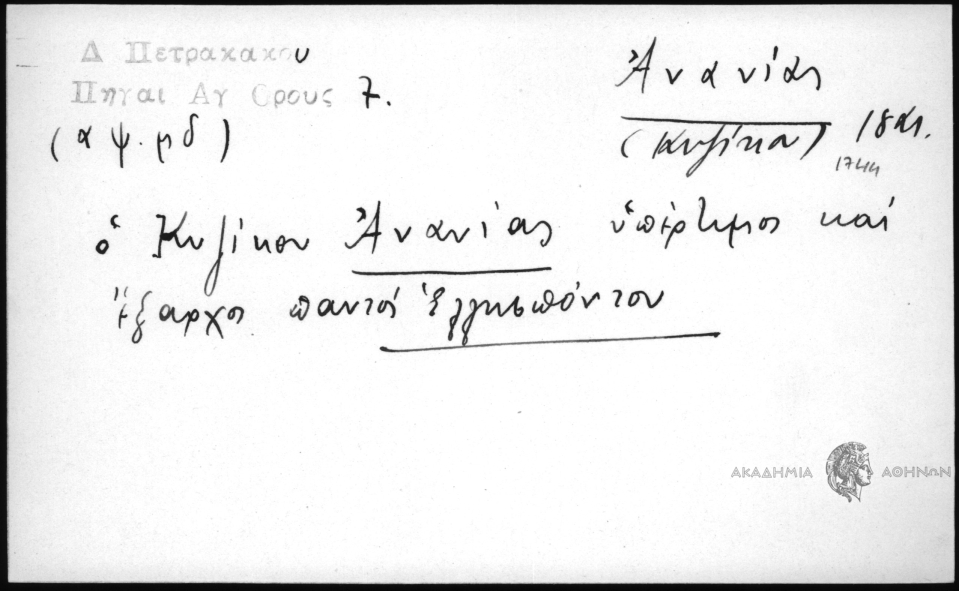 Δ Πετρακακου
Πηγαι Αγ Ορους 7.
(αψ.μδ)
Ἀνανίας
(Κυζίκου) 18 αι.
1744
ὁ Κυζίκου Ἀνανίας ὑπέρτιμος καί
ἔξαρχος παντός Ἑλλησπόντου
ΑΚΑΔΗΜΙΑ ΑΘΗΝΩΝ